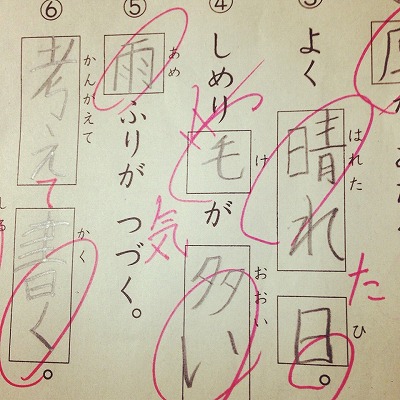 よく晴れ日。
はれた ひ
た
④ しめり毛が多い
け おおい
気
⑤ 雨ふりが つづく。
あめ
⑥ 考えて書く。
かんがえて かく